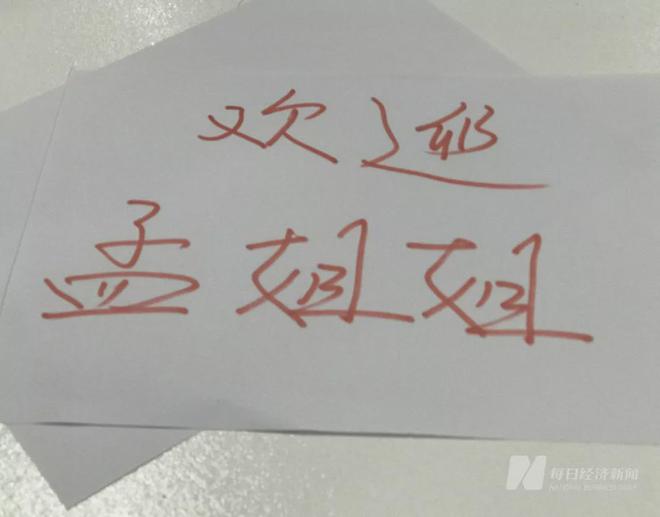 欢迎
孟姐姐
每日经济新闻
NATIONAL BUSINESS DAILY